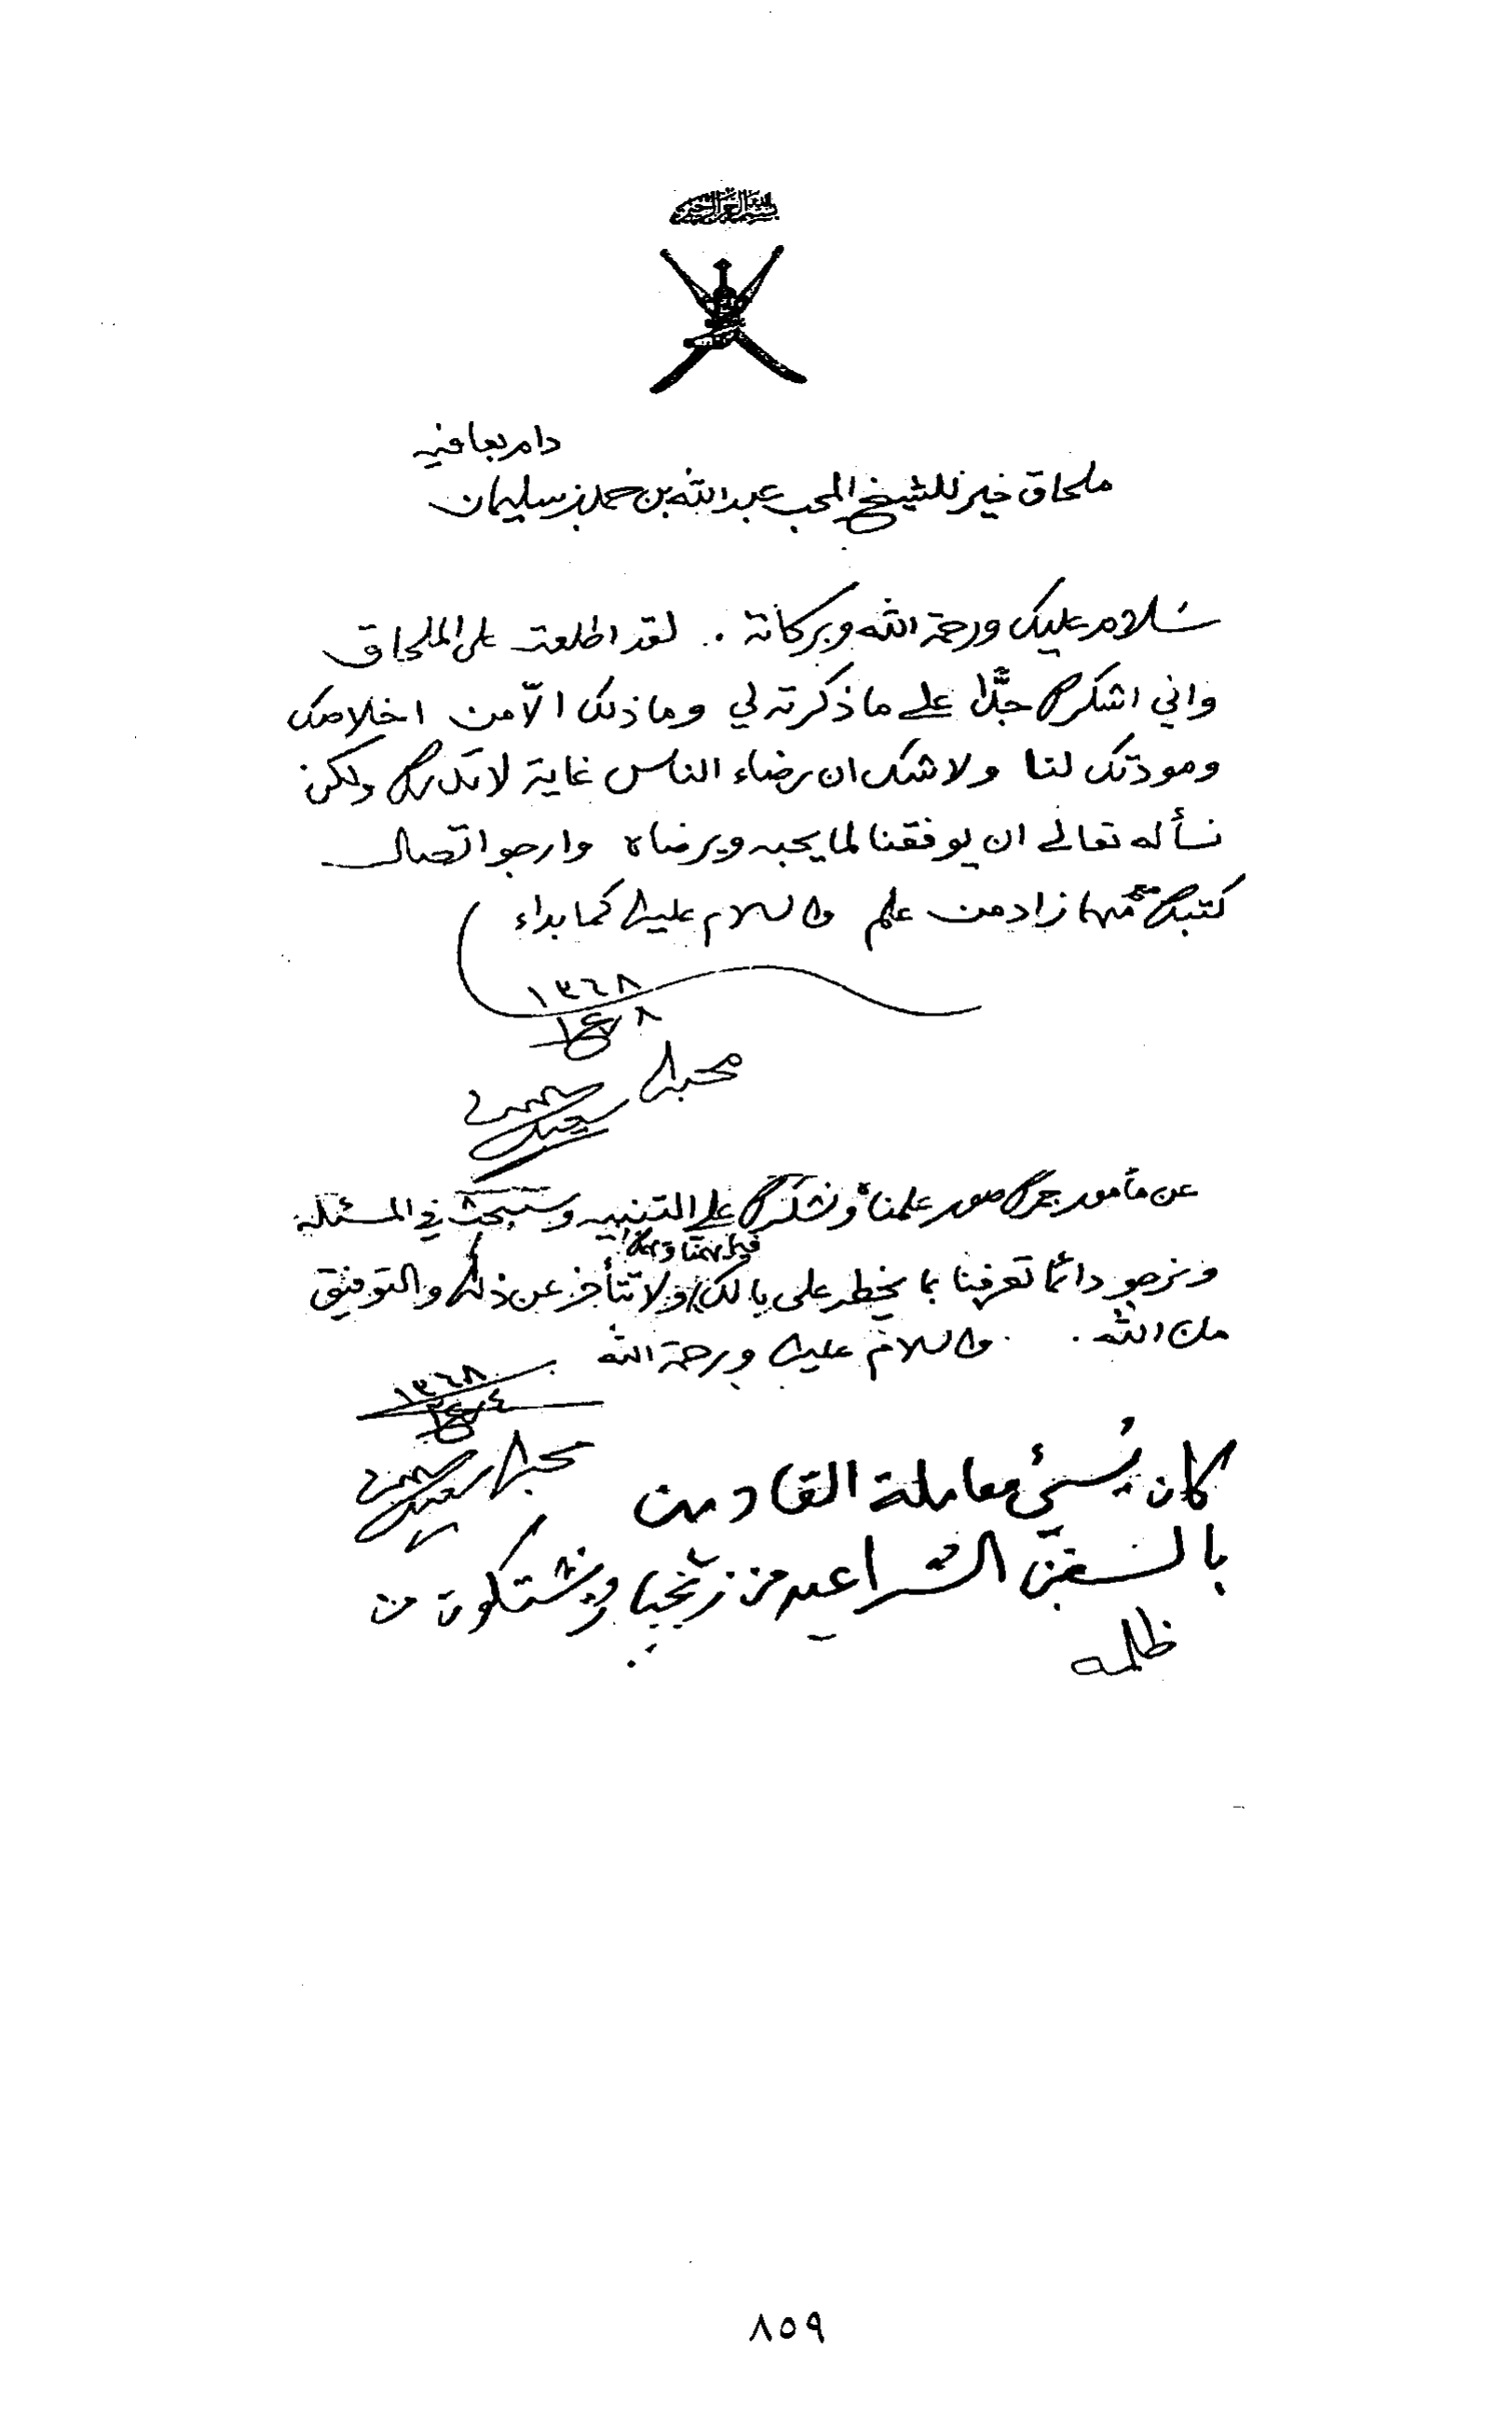 بسم الله الرحمن الرحيم
دام بعافيه
ملحاق خير للشيخ المحب عبدالله بن حمد بن سليمان
سلام عليك ورحمة الله وبركاته . لقد اطلعت على الملحاق
واني اشكرك جدًّا على ما ذكرته لي وما ذلك الّا من اخلاصك
ومودتك لنا ولا شك ان رضاء الناس غاية لا تدرك ولكن
نسأله تعالى ان يوفقنا لما يحبه ويرضاه وارجو اتصال
كتبك مهما زاد من علم والسلام عليك كما بداء
١٣٦٨
محبك
سعيد
عن مأمور جمرك صور علمناه ونشكرك على التنبيه وسنبحث في المسئله
ونرجو دائما تعرفنا بما يخطر على بالك ولا تتأخر عن ذلك والتوفيق
من الله . والسلام عليك ورحمة الله
١٣٦٨
محبك سعيد
كان يُسئ معاملة القادمين
بالسفن الشراعيه من زنجبار ويشتكون من
ظلمه
٨٥٩